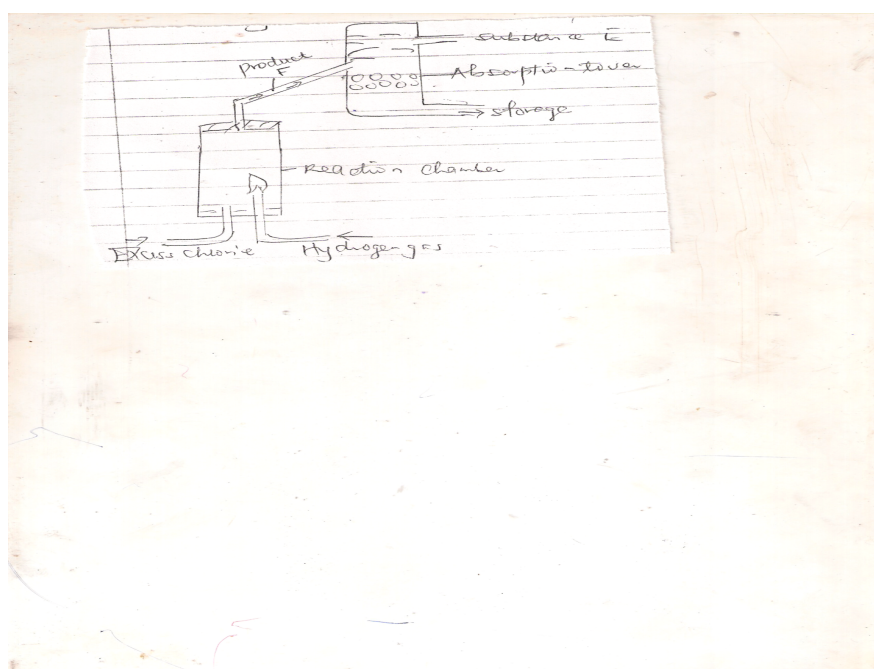 substance E
product
F
Absorption-tower
storage
Reaction Chamber
Excess Chlorine
Hydrogen gas